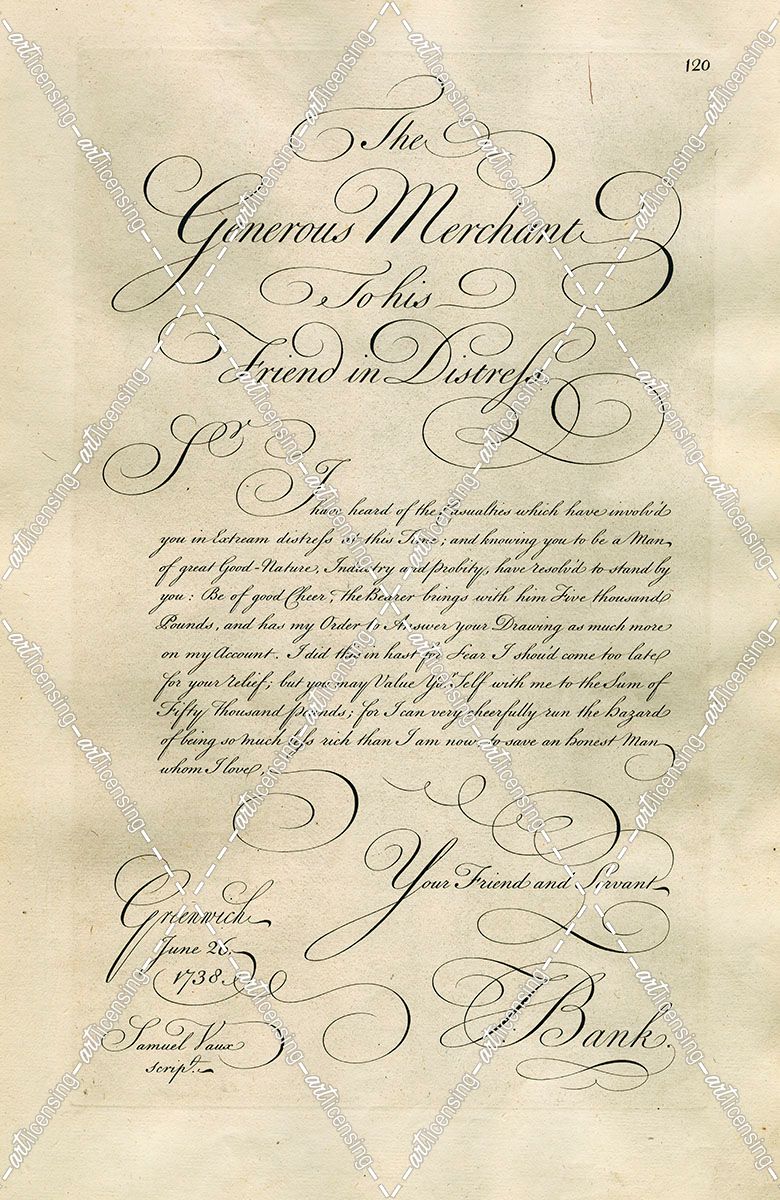 120
The
Generous Merchant
To his
Friend in Distress
Sr.
I have heard of the Casualties which have involv'd
you in Extream distress at this Time; and knowing you to be a Man
of great Good-Nature, Industry and Probity, have resolv'd to stand by
you: Be of good Cheer, the Bearer brings with him Five thousand
Pounds, and has my Order to Answer your Drawing as much more
on my Account. I did this in hast for Fear I shou'd come too late
for your relief; but you may Value Yor. Self with me to the Sum of
Fifty Thousand pounds; for I can very cheerfully run the hazard
of being so much less rich than I am now to save an honest Man
whom I love,
Your Friend and Servant
Greenwich
June 26.
1738.
T Bank.
Samuel Vaux
script.
artlicensing